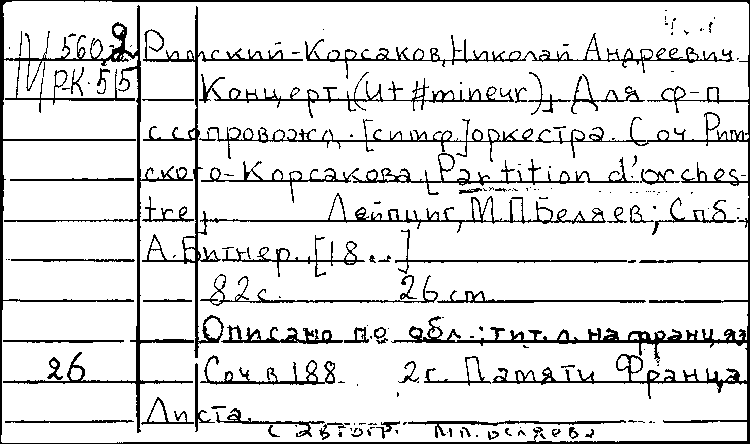 М 560-2 Римский-Корсаков, Николай Андреевич.
РК-515 Концерт [(ut #mineur)] Для ф-п
с сопровожд. [симф] оркестра. Соч Рим-
ского-Корсакова [Partition d'orches-
tre]. Лейпциг, М.П.Беляев; Спб.,
А.Битнер. [18..]
82 с. 26 cm
Описано по обл.; тит. л. на франц яз
26 Соч в 188 2 г. Памяти Франца
Листа.
с автогр. М.П. Беляева